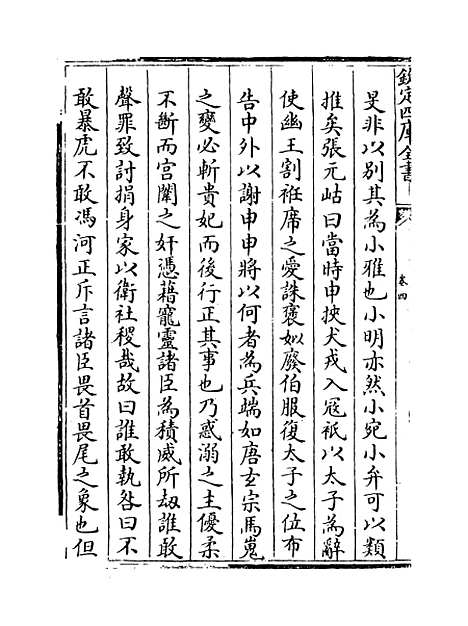 欽定四庫全書
卷四
旻非以別其為小雅也小明亦然小宛小弁可以類
推矣張元岵曰當時申挾犬戎入冦秪以太子為辭
使幽王割袵席之愛誅褒姒廢伯服復太子之位布
告中外以謝申申將以何者為兵端如唐玄宗馬嵬
之變必斬貴妃而後行正其事也乃惑溺之主優柔
不斷而宫闈之奸憑藉寵靈諸臣為積威所刼誰敢
聲罪致討捐身家以衛社稷哉故曰誰敢執咎曰不
敢暴虎不敢馮河正斥言諸臣畏首畏尾之象也但